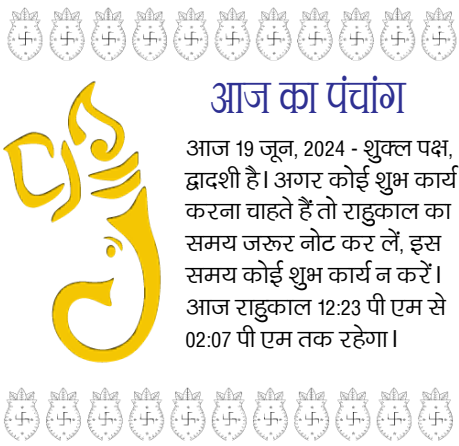 आज का पंचांग
आज 19 जून, 2024 - शुक्ल पक्ष,
द्वादशी है। अगर कोई शुभ कार्य
करना चाहते हैं तो राहुकाल का
समय जरूर नोट कर लें, इस
समय कोई शुभ कार्य न करें।
आज राहुकाल 12:23 पी एम से
02:07 पी एम तक रहेगा।